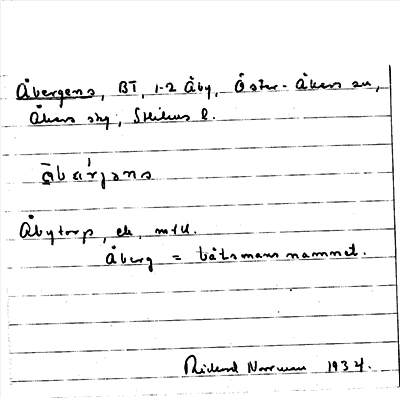 Åbergens, BT, 1-2 Åby, Öster-Åkers sn,
Åkers skg, Sthlms l.
Åbytorp, ek, mtl.
Åberg = båtsmansnamnet.
Rickard Norrman 1934.